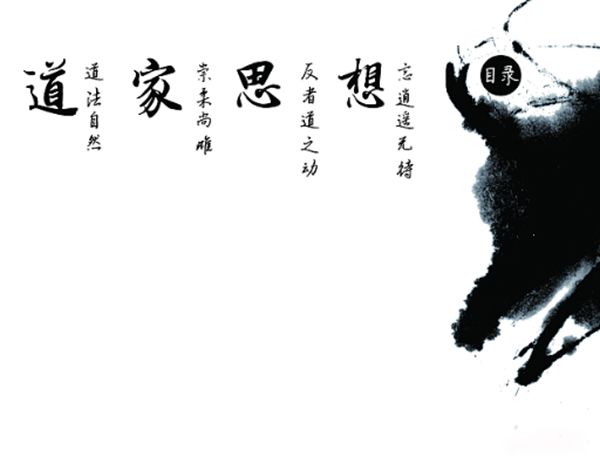 目录
道家思想
道法自然
崇柔尚雌
反者道之动
忘逍遥无待